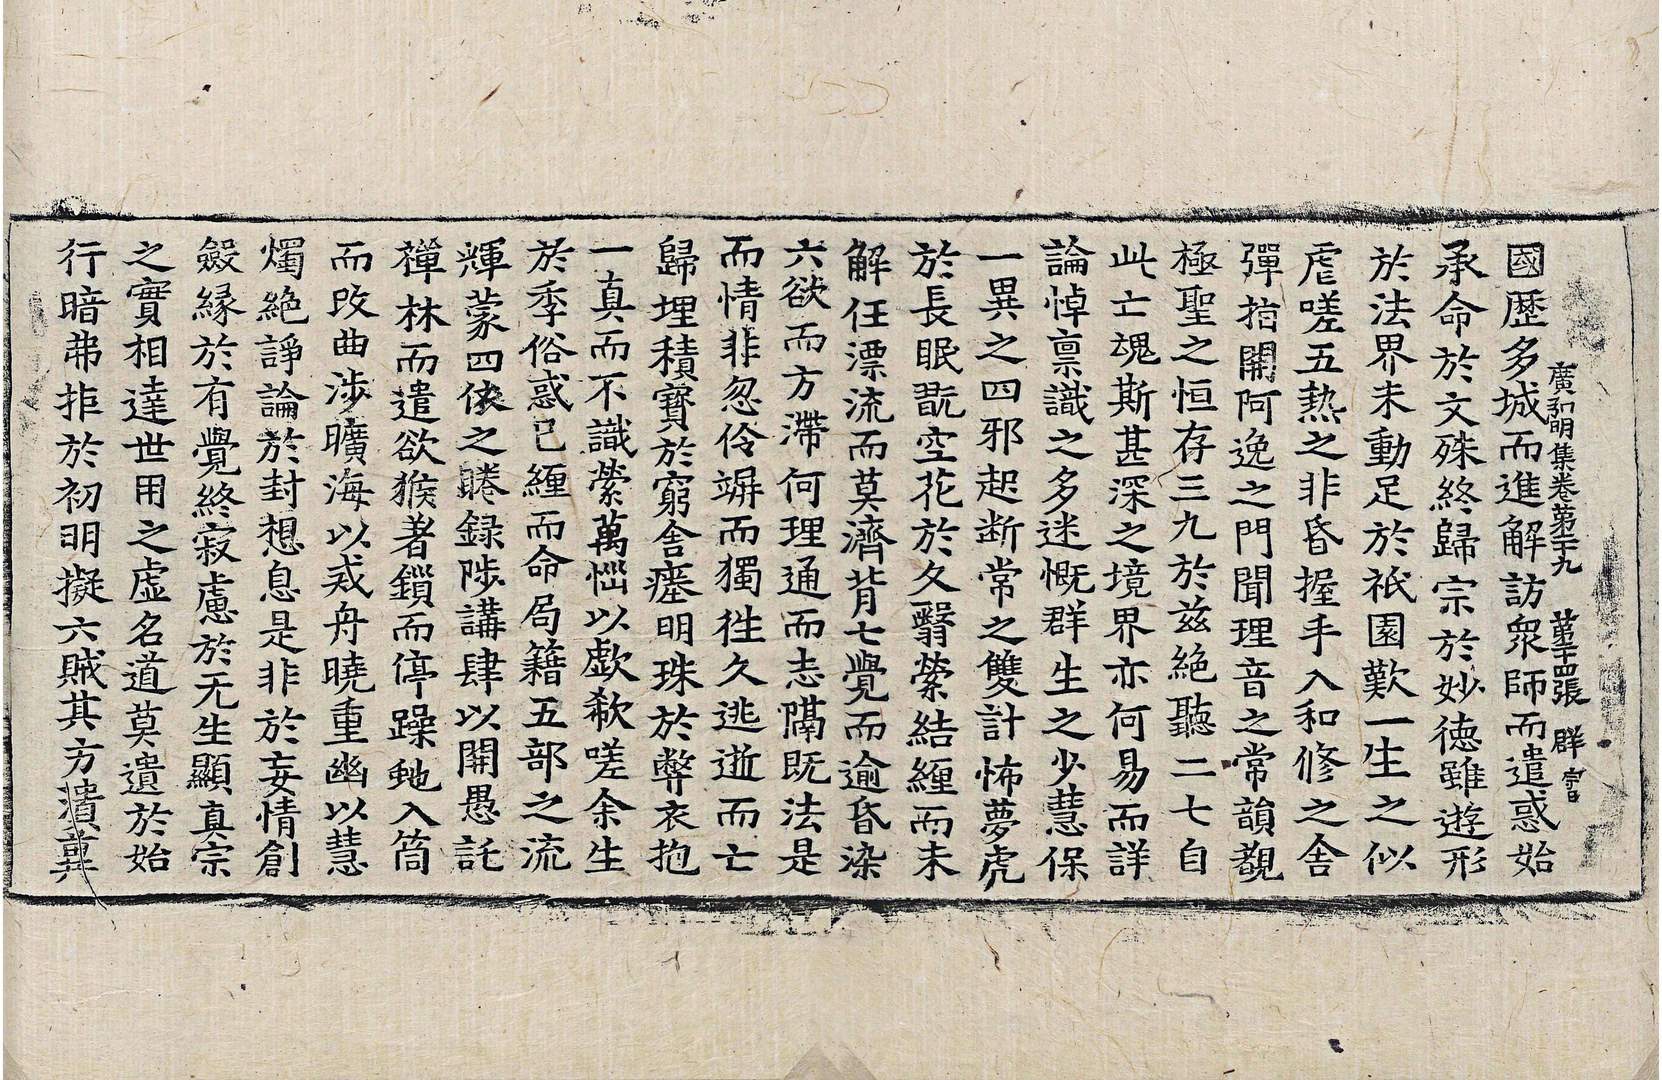 廣弘明集卷第二十九 第十四張 群
國歷多城而進解訪衆師而遣惑始
承命於文殊終歸宗於妙徳雖遊形
於法界未動足於祇園歎一生之似
虐嗟五熱之非昏握手入和修之舍
彈指開阿逸之門聞理音之常韻觀
極聖之恒存三九於兹絶聽二七自
此亡魂斯甚深之境界亦何易而詳
論悼禀識之多迷慨群生之少慧保
一異之四邪起断常之雙計怖夢虎
於長眠翫空花於久翳縈結纒而未
解任漂流而莫濟背七覺而逾昏染
六欲而方滯何理通而志隔既法是
而情非忽伶竮而獨徃久逃逝而亡
歸埋積寶於窮舎瘞明珠於弊衣抱
一真而不識縈萬惱以歔欷嗟余生
於季俗惑已纒而命局籍五部之流
輝蒙四依之睠録陟講肆以開愚託
禪林而遣欲猴著鎖而停躁虵入筒
而改曲渉曠海以戒舟曉重幽以慧
燭絶諍論於封想息是非於妄情創
斂縁於有覺終寂慮於无生顯真宗
之實相達世用之虚名道莫遺於始
行暗弗拒於初明擬六賊其方潰冀